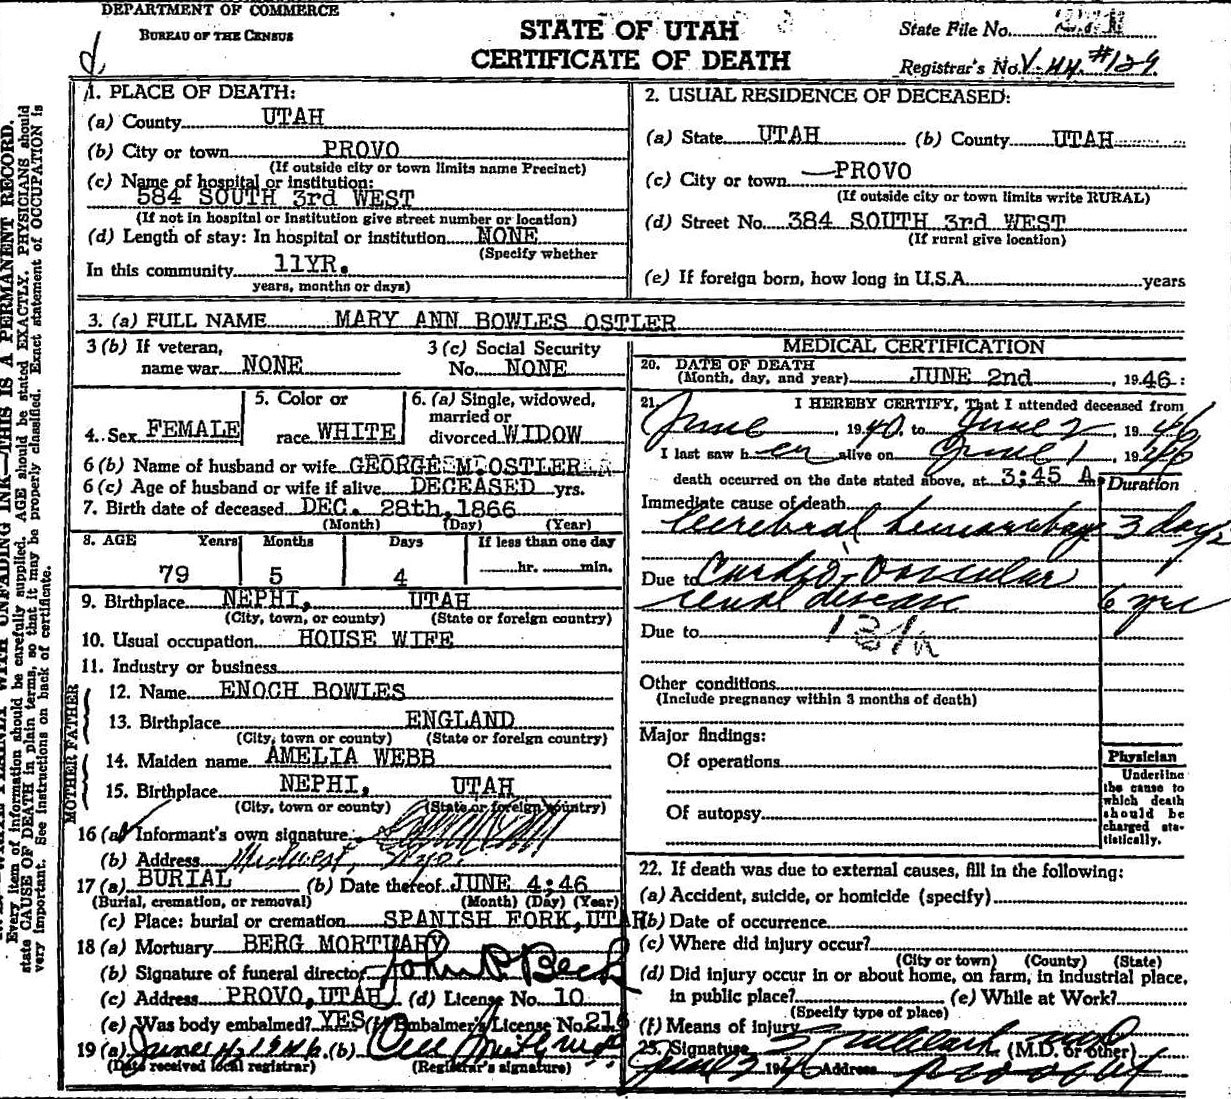 DEPARTMENT OF COMMERCE
BUREAU OF THE CENSUS
STATE OF UTAH
CERTIFICATE OF DEATH
State File No.
Registrar's No. V-44 #129
1. PLACE OF DEATH:
(a) County UTAH
(b) City or town PROVO
(If outside city or town limits name Precinct)
(c) Name of hospital or institution:
584 SOUTH 3rd WEST
(If not in hospital or institution give street number or location)
(d) Length of stay: In hospital or institution NONE
(Specify whether
In this community 11YR.
years, months or days)
2. USUAL RESIDENCE OF DECEASED:
(a) State UTAH (b) County UTAH
(c) City or town PROVO
(If outside city or town limits write RURAL)
(d) Street No. 384 SOUTH 3rd WEST
(If rural give location)
(e) If foreign born, how long in U.S.A. years
3. (a) FULL NAME MARY ANN BOWLES OSTLER
3 (b) If veteran,
name war NONE
3 (c) Social Security
No. NONE
4. Sex FEMALE
5. Color or
race WHITE
6. (a) Single, widowed,
married or
divorced WIDOW
6 (b) Name of husband or wife GEORGE M. OSTLER
6 (c) Age of husband or wife if alive DECEASED yrs.
7. Birth date of deceased DEC. 28th, 1866
(Month) (Day) (Year)
8. AGE Years Months Days If less than one day
79 5 4 hr. min.
9. Birthplace NEPHI, UTAH
(City, town, or county) (State or foreign country)
10. Usual occupation HOUSE WIFE
11. Industry or business
FATHER
12. Name ENOCH BOWLES
13. Birthplace ENGLAND
(City, town or county) (State or foreign country)
MOTHER
14. Maiden name AMELIA WEBB
15. Birthplace NEPHI, UTAH
(City, town or county) (State or foreign country)
16 (a) Informant's own signature
(b) Address Midwest, Wyo.
17 (a) BURIAL (b) Date thereof JUNE 4;46
(Burial, cremation, or removal) (Month) (Day) (Year)
(c) Place: burial or cremation SPANISH FORK, UTAH
18 (a) Mortuary BERG MORTUARY
(b) Signature of funeral director John P Beck
(c) Address PROVO, UTAH (d) License No. 10
(e) Was body embalmed? YES (f) Embalmer's License No. 216
19 (a) June 4, 1946 (b)
(Date received local registrar) (Registrar's signature)
MEDICAL CERTIFICATION
20. DATE OF DEATH
(Month, day, and year) JUNE 2nd, 1946:
21. I HEREBY CERTIFY, That I attended deceased from
June, 1940, to June 2, 1946
I last saw her alive on June 1, 1946
death occurred on the date stated above, at 3:45 A. Duration
Immediate cause of death
Cerebral hemorrhage 3 days
Due to Cardio-vascular
renal disease 6 yrs
Due to
Other conditions
(Include pregnancy within 3 months of death)
Major findings:
Of operations
Of autopsy
Physician
Underline
the cause to
which death
should be
charged sta-
tistically.
22. If death was due to external causes, fill in the following:
(a) Accident, suicide, or homicide (specify)
(b) Date of occurrence
(c) Where did injury occur?
(City or town) (County) (State)
(d) Did injury occur in or about home, on farm, in industrial place,
in public place? (e) While at Work?
(Specify type of place)
(f) Means of injury
23. Signature (M.D. or other)
June 1946 Address Provo Ut
THIS IS A PERMANENT RECORD.
Every item of information should be carefully supplied. AGE should be stated EXACTLY. PHYSICIANS should
state CAUSES OF DEATH in plain terms, so that it may be properly classified. Exact statement of OCCUPATION is
very important. See instructions on back of certificate.